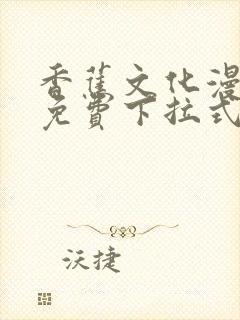 香蕉文化漫
免費下拉式
沃捷